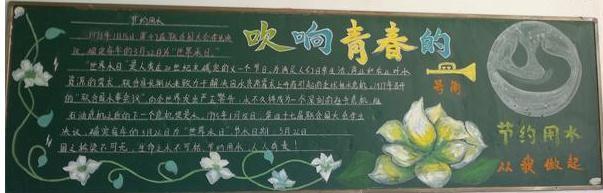 节约用水
1993年1月18日 第47届联合国大会作出决
议，确定每年的3月22日为"世界水日"。
"世界水日"是人类在20世纪末确定的又一个节日。为满足人们日常生活、商业和农业对水
资源的需求，联合国长期以来致力于解决因水资源需求上升而引起的全球性水危机。1977年召开
的"联合国水事会议"，向全世界发出严正警告：水不久将成为一个深刻的社会危机，继
石油危机之后的下一个危机便是水。1993年1月18日，第四十七届联合国大会作出
决议，确定每年的3月22日为"世界水日"。节水日期：3月22日
因之核能不可无，生命之水不可枯，节约用水，人人有责！
吹响青春的
号角
节约用水
从我做起